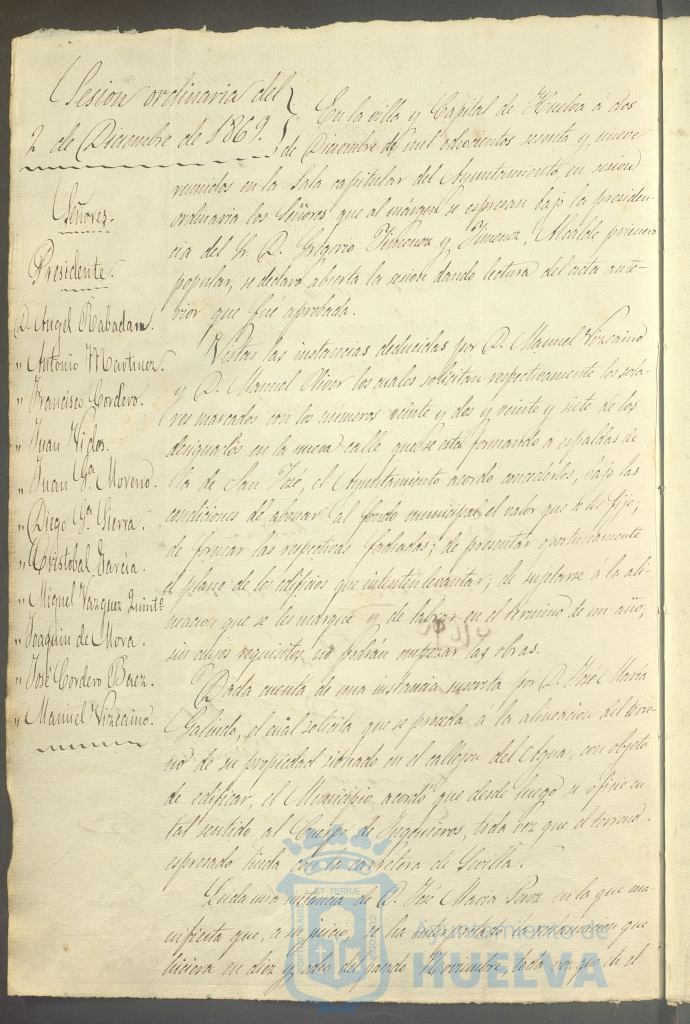 Sesion ordinaria del
2 de Diciembre de 1869.
Señores.
Presidente.
D. Angel Rabadan.
" Antonio Martinez.
" Francisco Cordero.
" Juan Vides.
" Juan Gª Moreno.
" Diego Gª Sierra.
" Cristobal Garcia.
" Miguel Vazquez Quintº
" Joaquin de Mora.
" José Cordero Baez.
" Manuel Vizcaino.
En la villa y Capital de Huelva a dos
de Diciembre de mil ochocientos sesenta y nueve
reunidos en la Sala capitular del Ayuntamiento, en sesion
ordinaria los Señores que al márgen se espresan bajo la presiden-
cia del Sr. D. Gregorio Jimenez y Jimenez, Alcalde primero
popular, se declaró abierta la sesion dando lectura del acta ante-
rior que fué aprobada.
Vistas las instancias deducidas por D. Manuel Vizcaino
y D. Manuel los cuales solicitan respectivamente los sola-
res marcados con los números veinte y dos y veinte y siete de los
designados en la nueva calle que se está formando a espaldas de
la de San José, el Ayuntamiento acordó concederlos, bajo las
condiciones de abonar al fondo municipal el valor que se les fije;
de formar las respectivas fachadas; de presentar oportunamente
el plano de los edificios que intenten levantar; de sujetarse á la ali-
neacion que se les marque y de labrar en el termino de un año,
sin cuyos requisitos no podrán empezar las obras.
Dada cuenta de una instancia suscrita por D. José Maria
Galindo, el cual solicita que se proceda á la alineacion del terre-
no de su propiedad situado en el callejon del Agua, con objeto
de edificar, el Municipio acordó que desde luego se oficie en
tal sentido al Cuerpo de Ingenieros, toda vez que el terreno
espresado linda con la carretera de Sevilla.
Leida una instancia de D. José Maria en la que ma-
nifiesta que, a su juicio, se ha interpretado la reclamacion que
hiciera en diez y ocho del pasado Noviembre, toda vez que de el
Ayuntamiento de
HUELVA